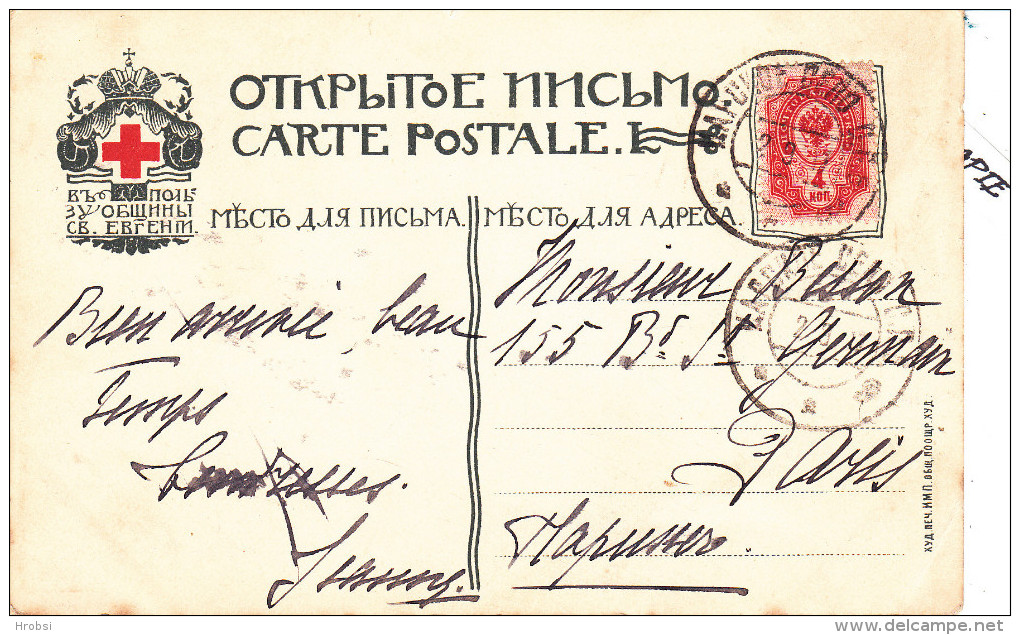 ОТКРЫТОЕ ПИСЬМО
CARTE POSTALE.
ВЪ ПОЛЬ-
ЗУ ОБЩИНЫ
СВ. ЕВГЕНІИ.
МѢСТО ДЛЯ ПИСЬМА.
МѢСТО ДЛЯ АДРЕСА.
4
КОП.
Bien arrivée, beau
Temps
Monsieur
155 Bd St Germain
Paris
ХУД. ПЕЧ. ИМП. ОБЩ. ПООЩР. ХУД.
Hrobsi
delcampe.net